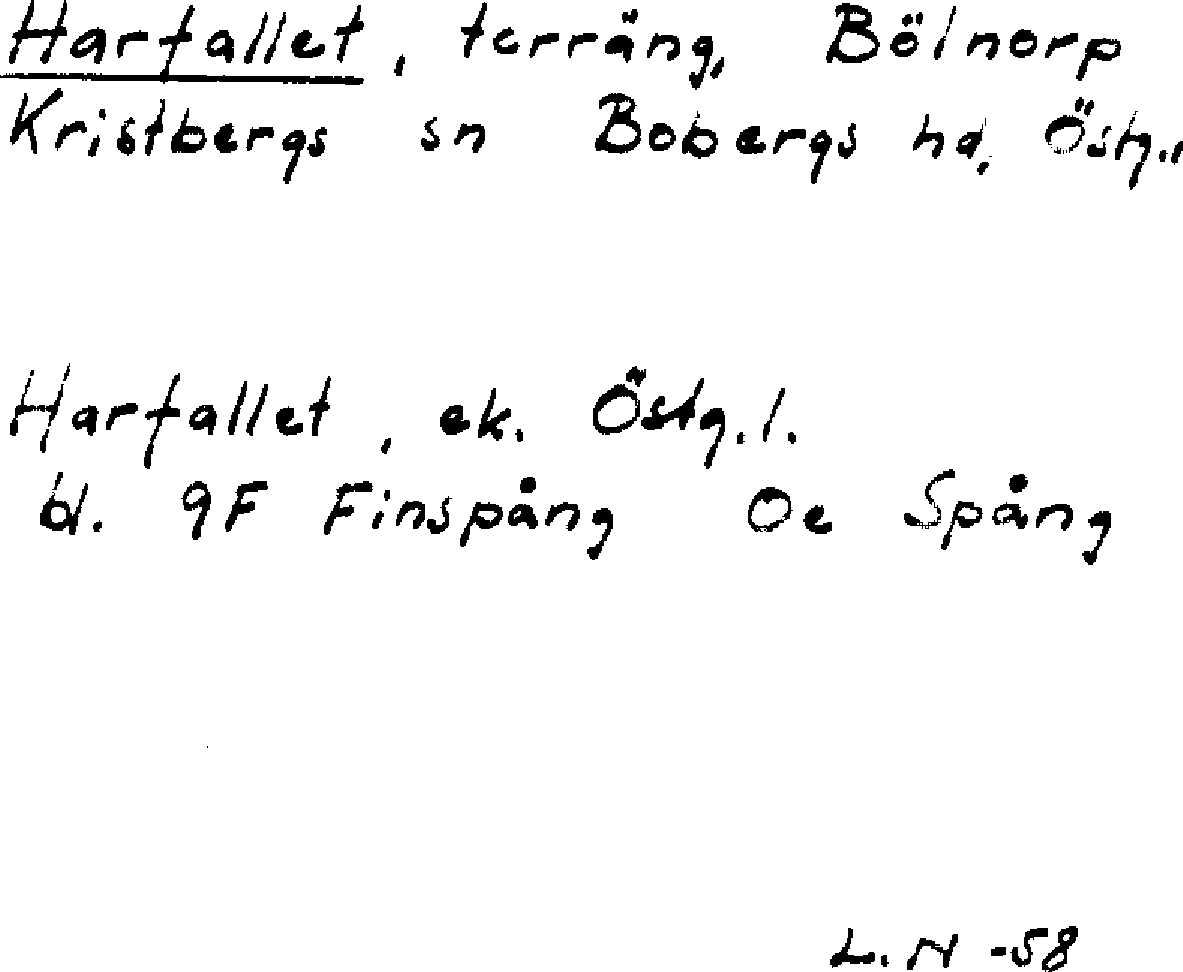 Harfallet, terräng, Bölnorp
Kristbergs sn Bobergs hd, Östg.,
Harfallet, ek. Östg.l.
bl. 9F Finspång 0e Spång
L. N -58